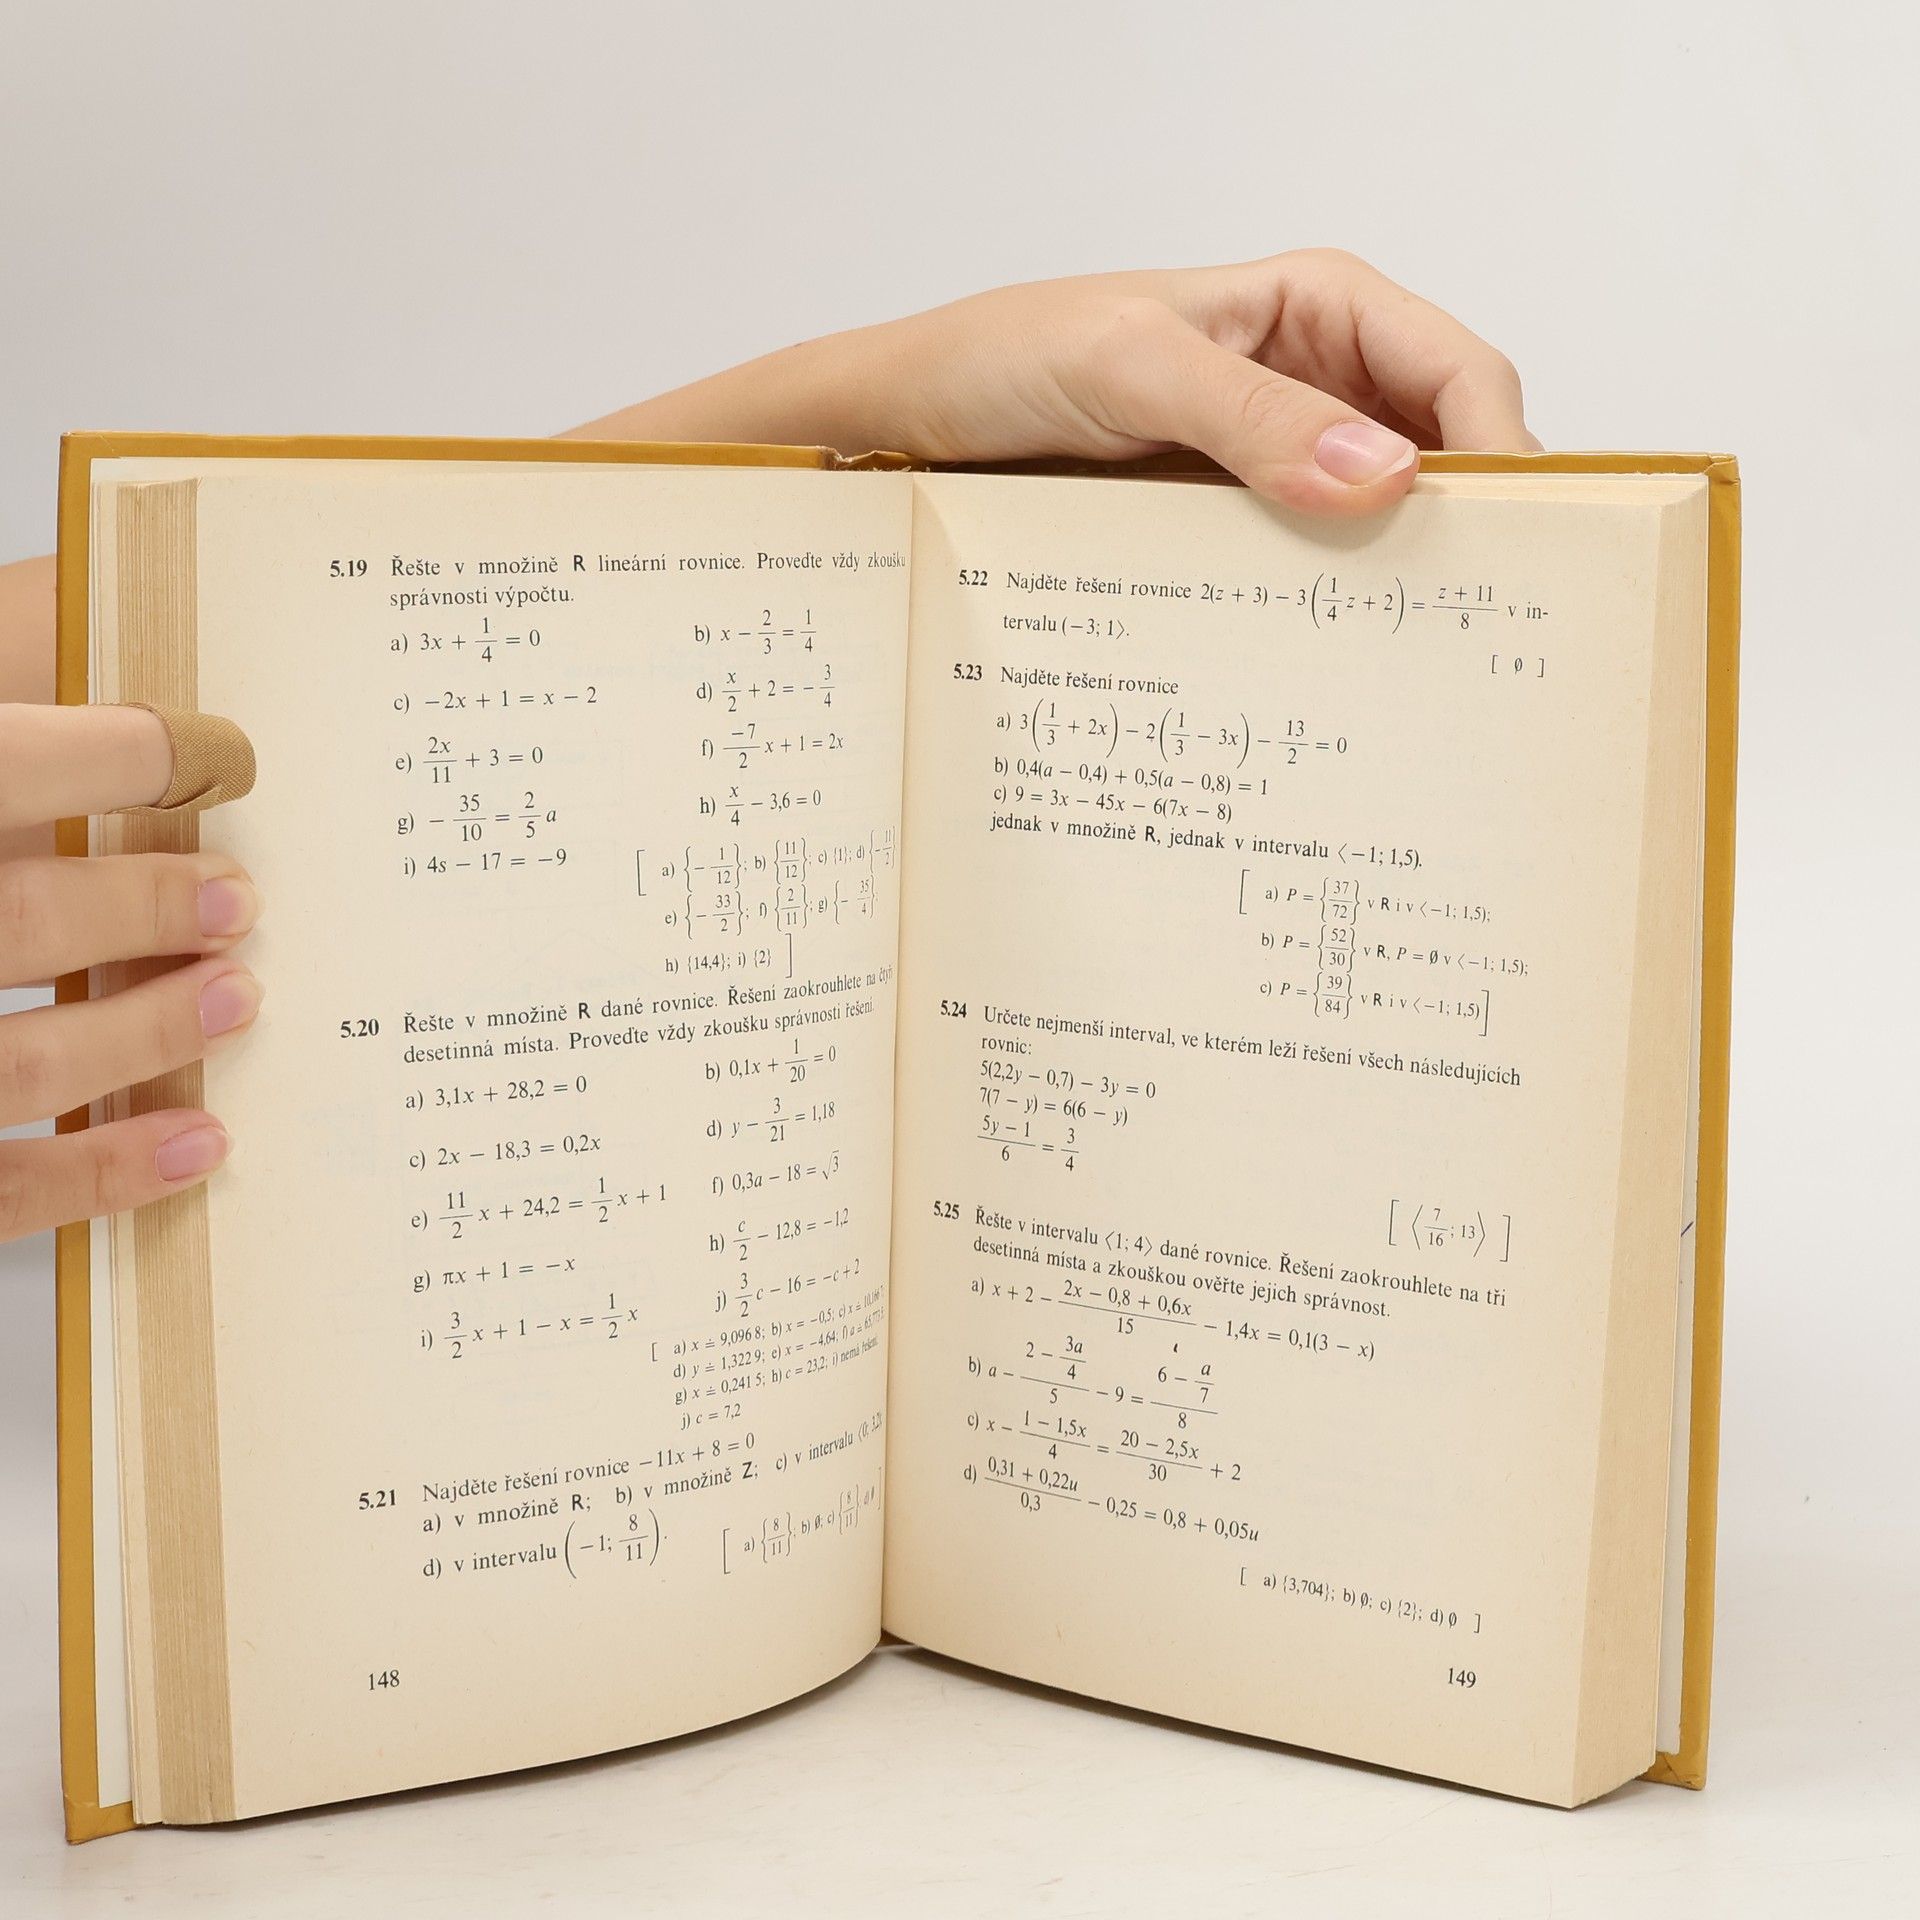 5.19 Řešte v množině R lineární rovnice. Proveďte vždy zkoušku
správnosti výpočtu.
a) 3x + 1/4 = 0 b) x − 2/3 = 1/4
c) −2x + 1 = x − 2 d) x/2 + 2 = −3/4
e) 2x/11 + 3 = 0 f) −7/2 x + 1 = 2x
g) −35/10 = 2/5 a h) x/4 − 3,6 = 0
i) 4s − 17 = −9
[ a) {−1/12}; b) {11/12}; c) {1}; d) {−11/2}
e) {−33/2}; f) {2/11}; g) {−35/4};
h) {14,4}; i) {2} ]
5.20 Řešte v množině R dané rovnice. Řešení zaokrouhlete na čtyři
desetinná místa. Proveďte vždy zkoušku správnosti řešení.
a) 3,1x + 28,2 = 0 b) 0,1x + 1/20 = 0
c) 2x − 18,3 = 0,2x d) y − 3/21 = 1,18
e) 11/2 x + 24,2 = 1/2 x + 1 f) 0,3a − 18 = √3
g) πx + 1 = −x h) c/2 − 12,8 = −1,2
i) 3/2 x + 1 − x = 1/2 x j) 3/2 c − 16 = −c + 2
[ a) x ≐ 9,096 8; b) x = −0,5; c) x ≐ 10,166 7;
d) y ≐ 1,322 9; e) x = −4,64; f) a ≐ 65,773 5;
g) x ≐ 0,241 5; h) c = 23,2; i) nemá řešení;
j) c = 7,2
5.21 Najděte řešení rovnice −11x + 8 = 0
a) v množině R; b) v množině Z; c) v intervalu ⟨0; 3,2)
d) v intervalu (−1; 8/11).
[ a) {8/11}; b) ∅; c) {8/11}; d) ∅ ]
148
5.22 Najděte řešení rovnice 2(z + 3) − 3(1/4 z + 2) = z + 11/8 v in-
tervalu (−3; 1⟩.
[ ∅ ]
5.23 Najděte řešení rovnice
a) 3(1/3 + 2x) − 2(1/3 − 3x) − 13/2 = 0
b) 0,4(a − 0,4) + 0,5(a − 0,8) = 1
c) 9 = 3x − 45x − 6(7x − 8)
jednak v množině R, jednak v intervalu ⟨−1; 1,5).
[ a) P = {37/72} v R i v ⟨−1; 1,5);
b) P = {52/30} v R, P = ∅ v ⟨−1; 1,5);
c) P = {39/84} v R i v ⟨−1; 1,5) ]
5.24 Určete nejmenší interval, ve kterém leží řešení všech následujících
rovnic:
5(2,2y − 0,7) − 3y = 0
7(7 − y) = 6(6 − y)
5y − 1/6 = 3/4
[ ⟨7/16; 13⟩ ]
5.25 Řešte v intervalu ⟨1; 4⟩ dané rovnice. Řešení zaokrouhlete na tři
desetinná místa a zkouškou ověřte jejich správnost.
a) x + 2 − 2x − 0,8 + 0,6x/15 − 1,4x = 0,1(3 − x)
b) a − 2 − 3a/4/5 − 9 = 6 − a/7/8
c) x − 1 − 1,5x/4 = 20 − 2,5x/30 + 2
d) 0,31 + 0,22u/0,3 − 0,25 = 0,8 + 0,05u
[ a) {3,704}; b) ∅; c) {2}; d) ∅ ]
149